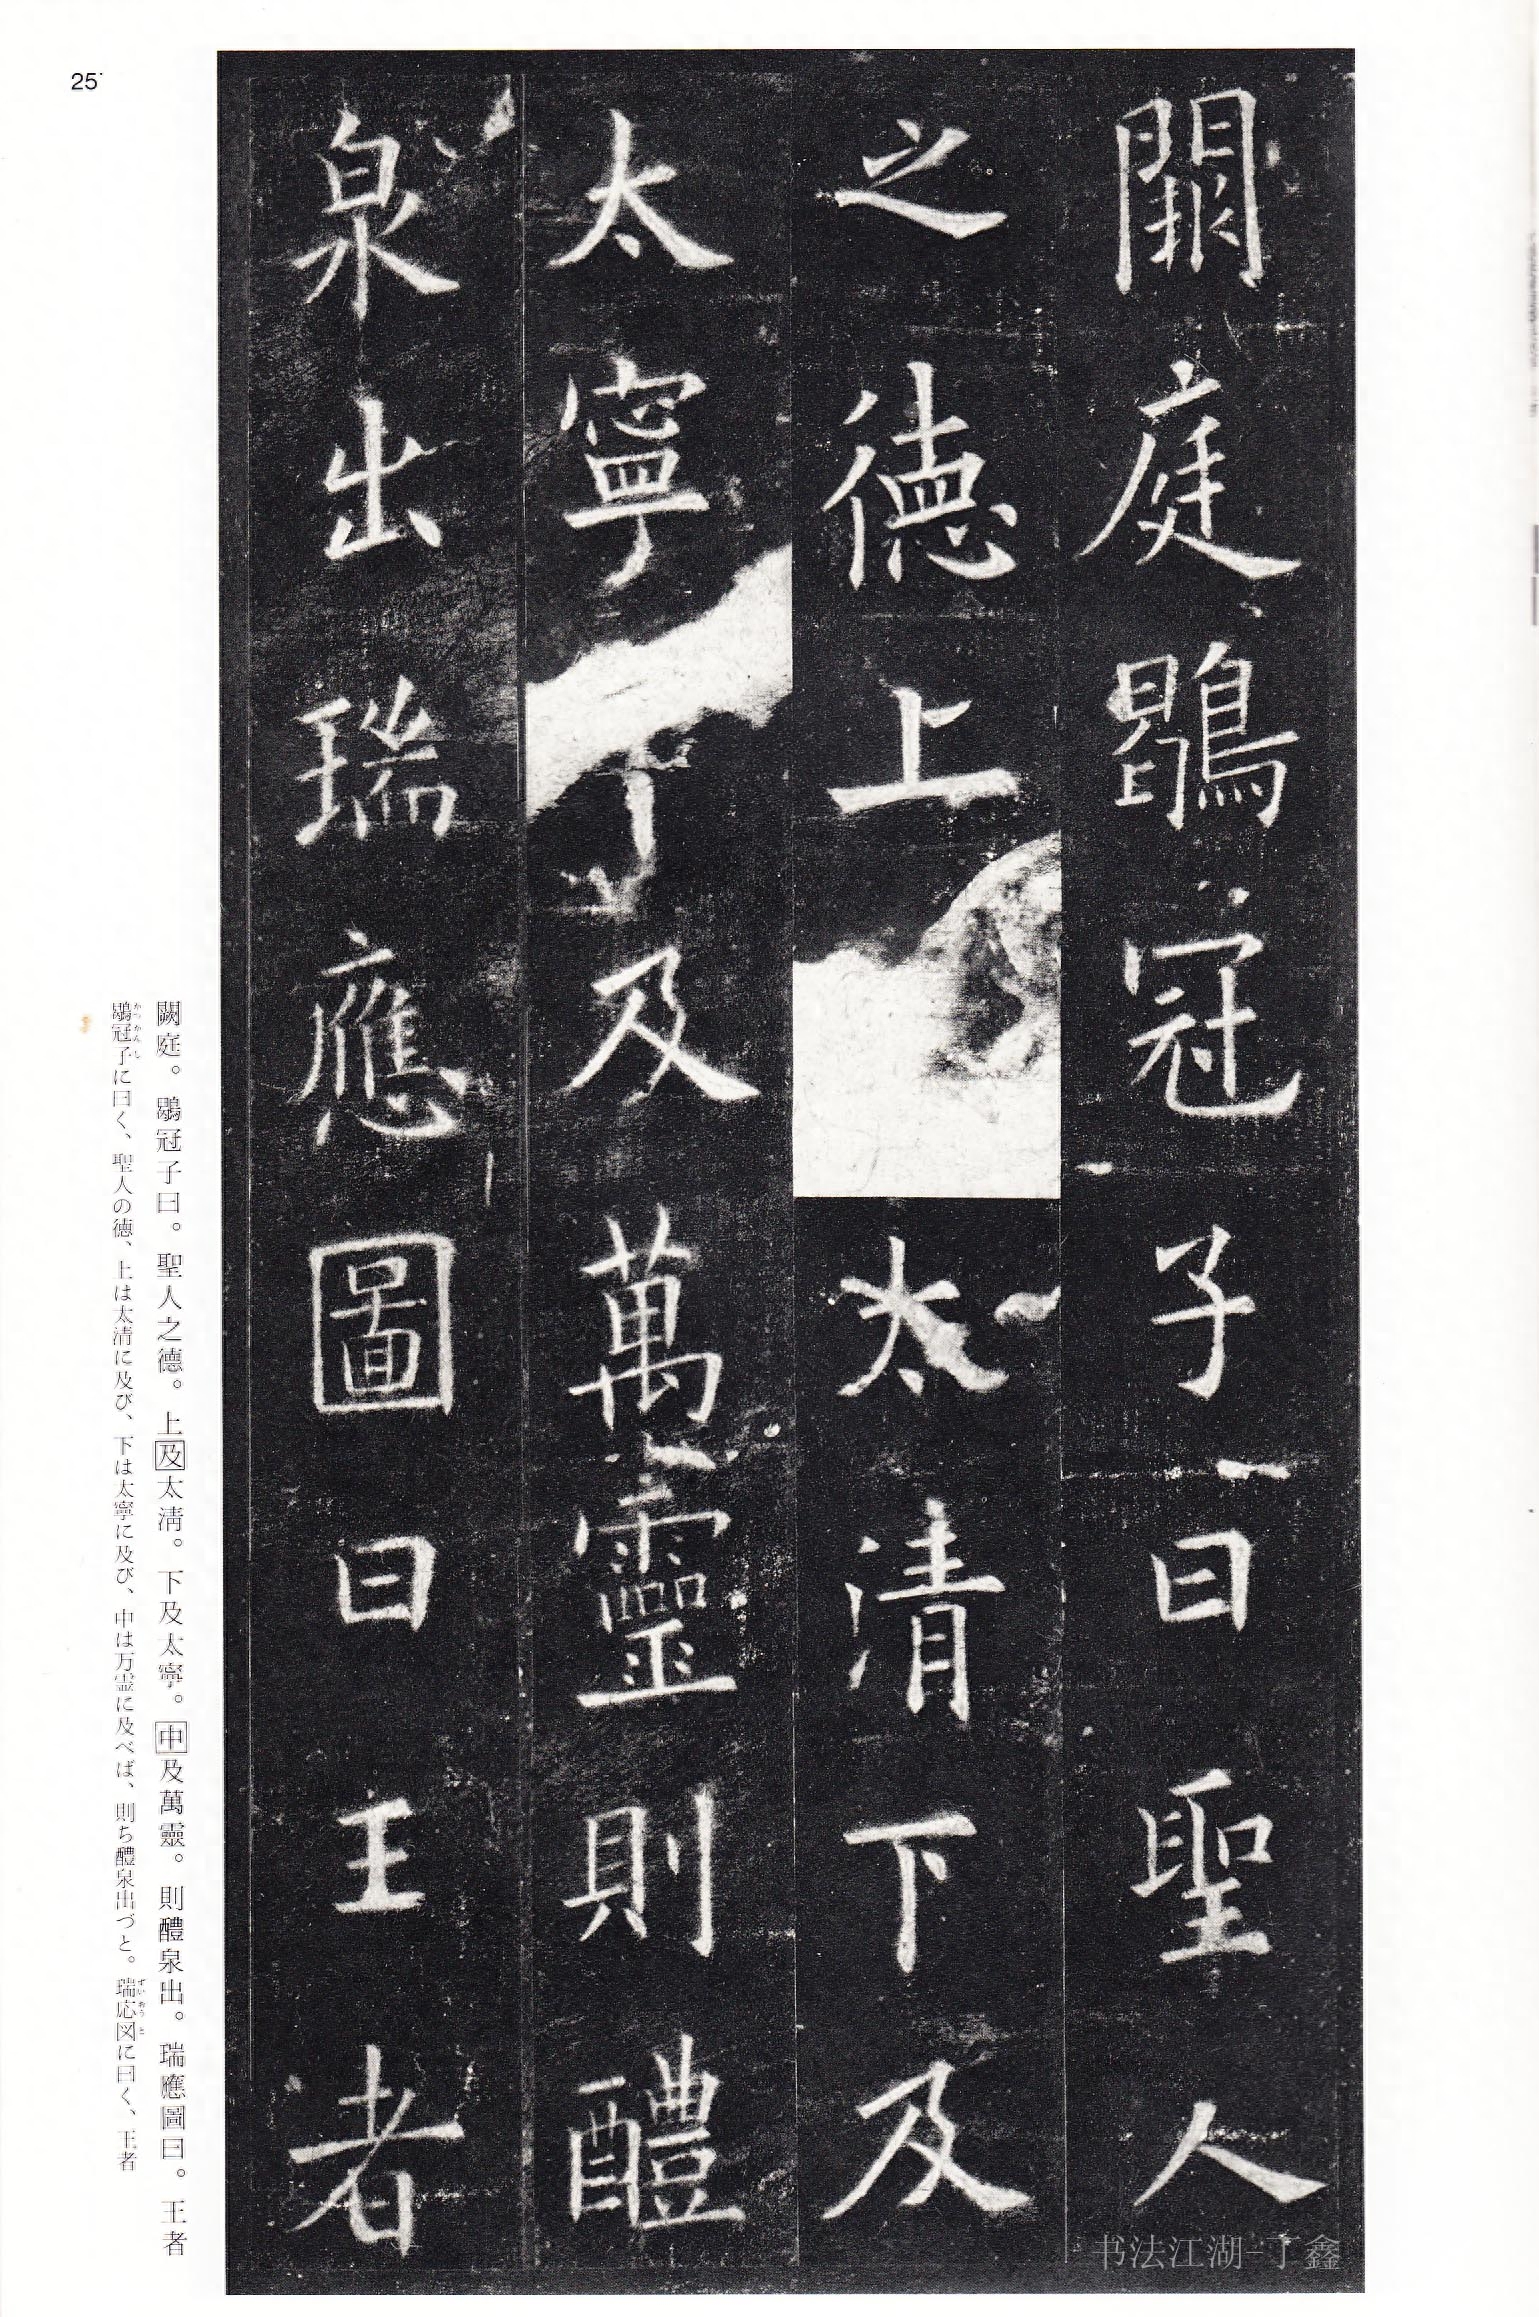 25
闕庭鶡冠子曰聖人
之德上太清下及
太寧及萬靈則醴
泉出瑞應圖曰王者
闕庭。鶡冠子曰。聖人之德。上及太淸。下及太寧。中及萬靈。則醴泉出。瑞應圖曰。王者
鶡冠子に曰く、聖人の徳、上は太清に及び、下は太寧に及び、中は万霊に及べば、則ち醴泉出づと。瑞応図に曰く、王者
かつかんし
ずいおうと
书法江湖-丁鑫